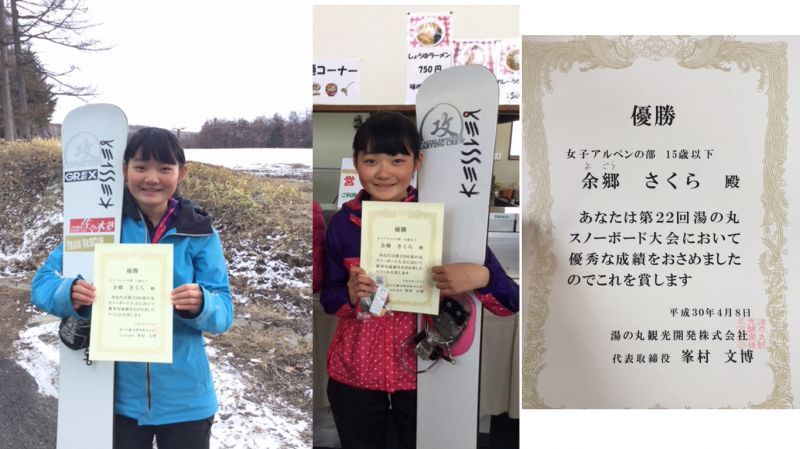 攻
GREX
TEAM RESCUE
優勝
しょうゆラーメン
750円
麺コーナー
750
攻
営
優勝
女子アルペンの部 15歳以下
よごう
余郷 さくら 殿
あなたは第22回湯の丸
スノーボード大会において
優秀な成績をおさめました
のでこれを賞します
平成30年4月8日
湯の丸観光開発株式会社
代表取締役 峯村 文博